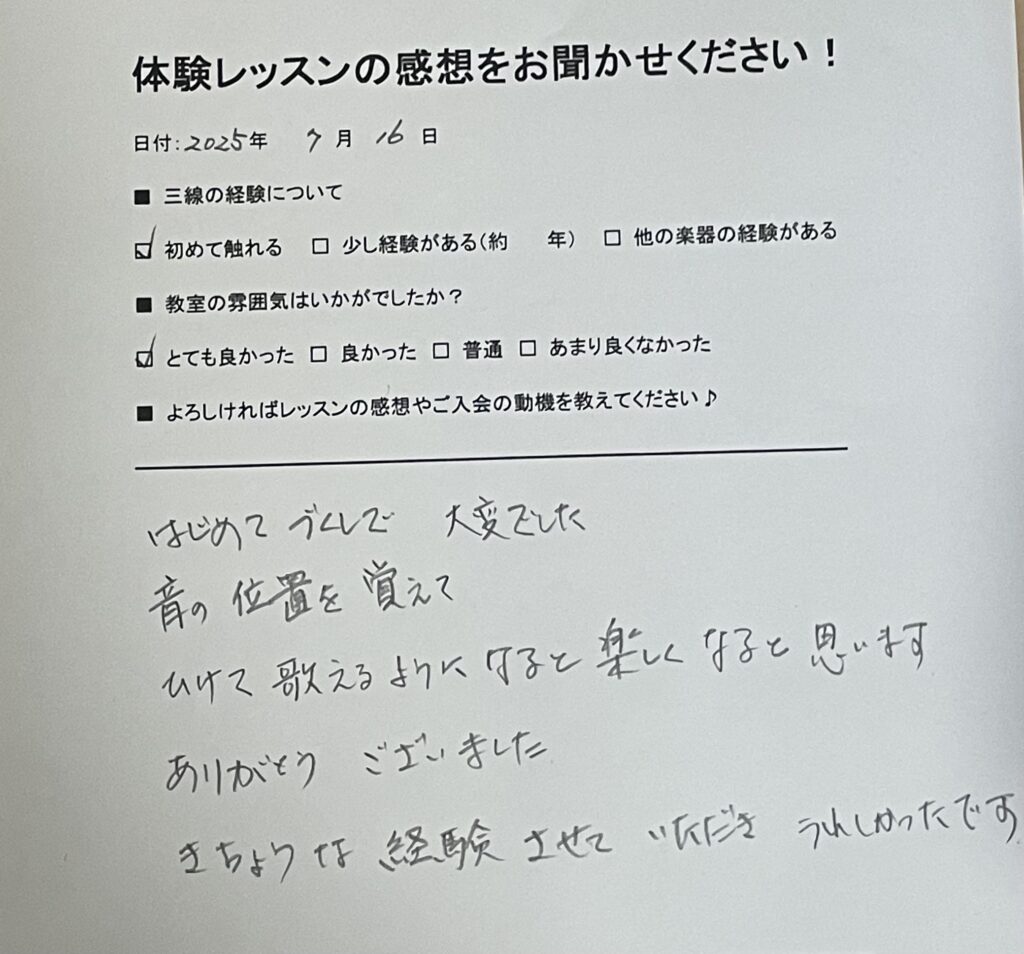 体験レッスンの感想をお聞かせください！
日付：2025年 7月 16日
■ 三線の経験について
☑ 初めて触れる □ 少し経験がある（約 年） □ 他の楽器の経験がある
■ 教室の雰囲気はいかがでしたか？
☑ とても良かった □ 良かった □ 普通 □ あまり良くなかった
■ よろしければレッスンの感想やご入会の動機を教えてください♪
はじめて づくしで 大変でした
音の 位置を 覚えて
ひけて 歌えるように なると 楽しく なると 思います
ありがとう ございました
きちょうな 経験 させて いただき うれしかったです